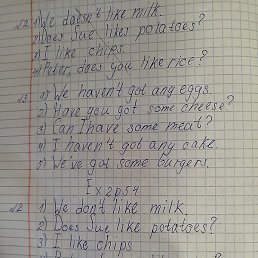 №2 1) We doesn't like milk.
2) Does Sue likes potatoes?
3) I like chips.
4) Peter, does you like rice?
№3 1) We haven't got any eggs.
2) Have you got some cheese?
3) Can I have some meat?
4) I haven't got any cake.
5) We've got some burgers.
Ex2p54
№2 1) We don't like milk.
2) Does Sue like potatoes?
3) I like chips